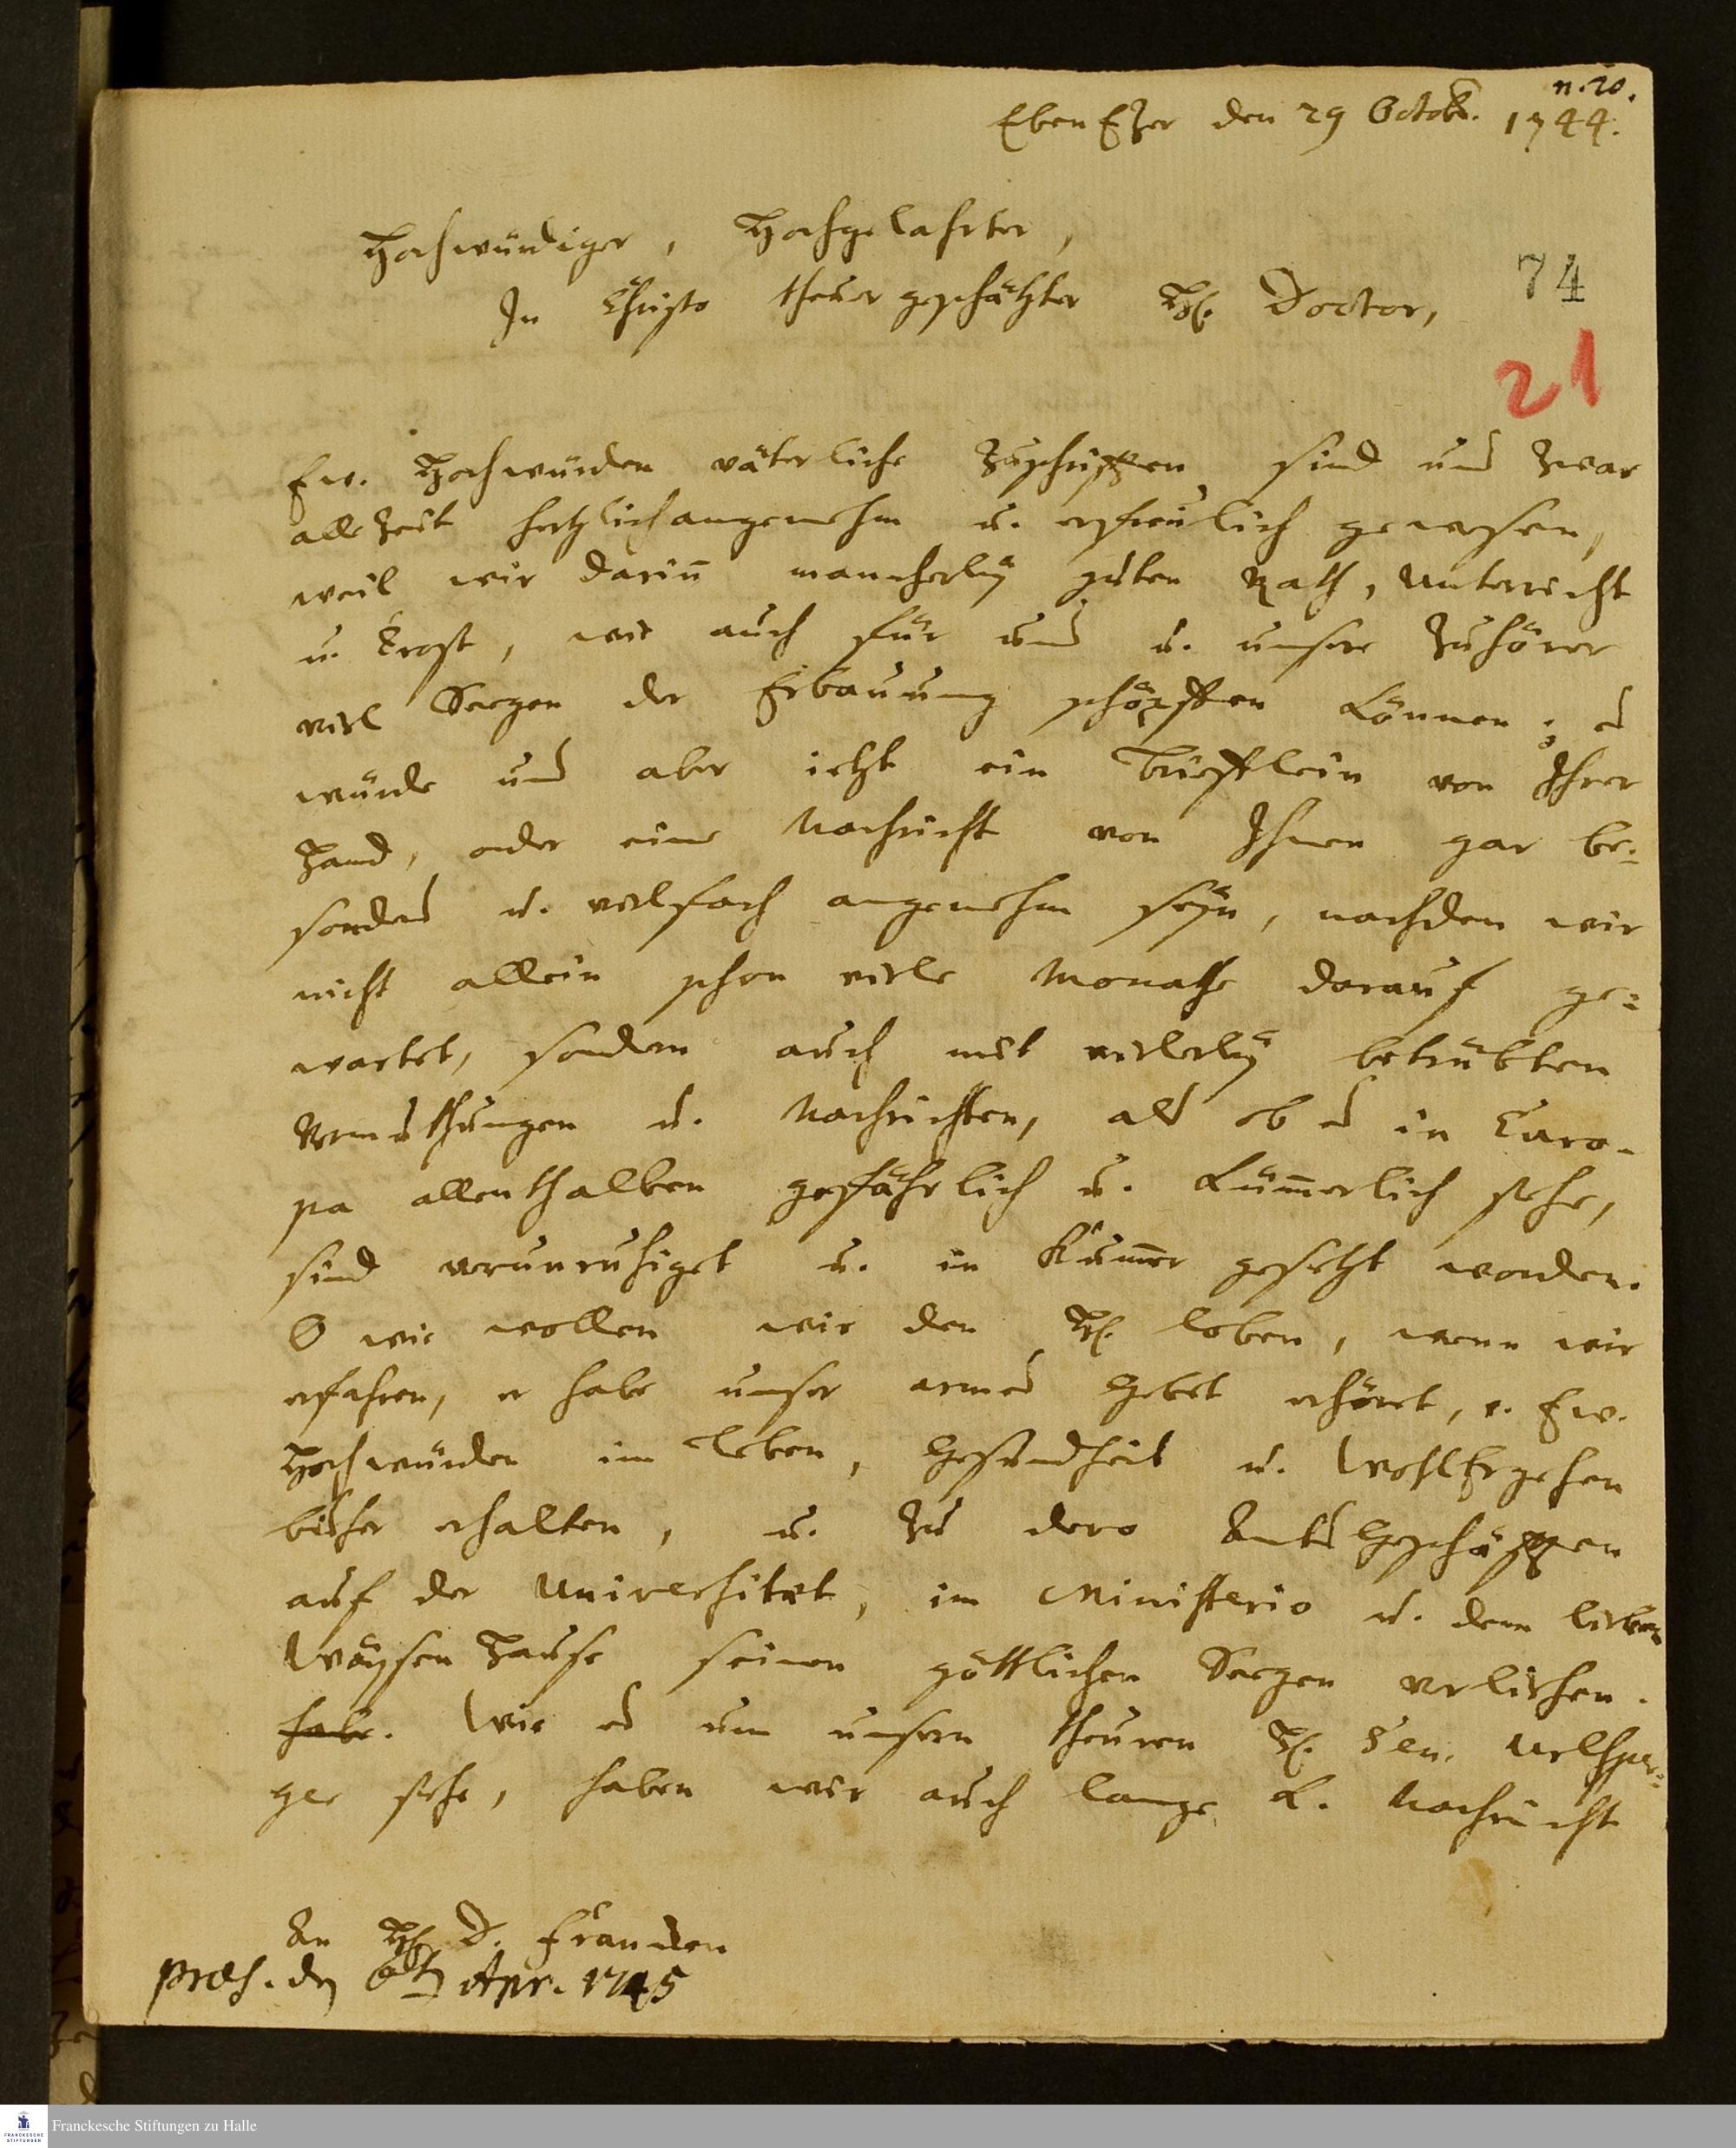 n. 20.
EbenEzer den 29 Octobr. 1744.
Hochwürdiger, Hochgelahrter,
In Christo theuer geschätzter H. Doctor,
74
21
Ew. Hochwürden väterliche Zuschrifften sind uns zwar
allezeit hertzlich angenehm u. erfreulich gewesen,
weil wir darin̄ mancherley guten Rath, Unterricht
u. Trost, wie auch für uns u. unsere Zuhörer
viel Seegen der Erbauung schöpffen können; es
würde uns aber ietzt ein Briefflein von Ihrer
Hand, oder eine Nachricht von Ihnen gar be-
sonders u. vielfach angenehm seyn, nachdem wir
nicht allein schon viele Monathe darauf ge-
wartet, sondern auch mit vielerley betrübten
Vermuthungen u. Nachrichten, als ob es in Euro-
pa allenthalben gefährlich u. küm̄erlich stehe,
sind verunruhiget u. in Kum̄er gesetzt worden.
O wie wollen wir den H. loben, wenn wir
erfahren, er habe unser armes Gebet erhöret, u. Ew.
Hochwürden im Leben, Gesundheit u. WohlErgehen
bisher erhalten, u. zu dero AmtsGeschäfften
auf der Universitæt, im Ministerio u. dem lieben
Wäysen Hause seinen göttlichen Seegen verliehen.
habe. Wie es um unsern theuren H. Sen. Urlsper-
ger stehe, haben wir auch lange k. Nachricht
An H. D. Francken
præs. den 6ten Apr. 1745
Franckesche Stiftungen zu Halle